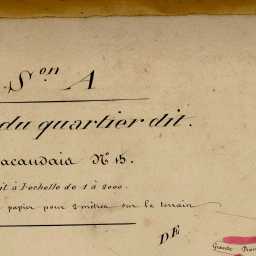 Son A
du quartier dit.
acaudais No 15.
à l'echelle de 1 à 2000.
papier pour 2 mètres sur le terrain
DE
Grande